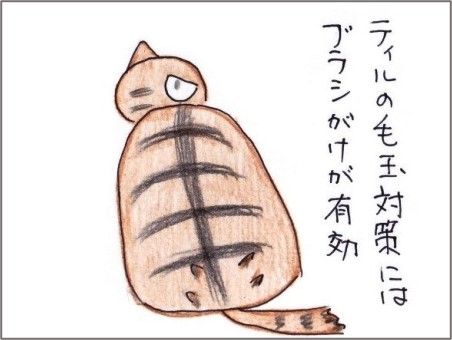 ティルの毛玉対策には
ブラシがけが有効